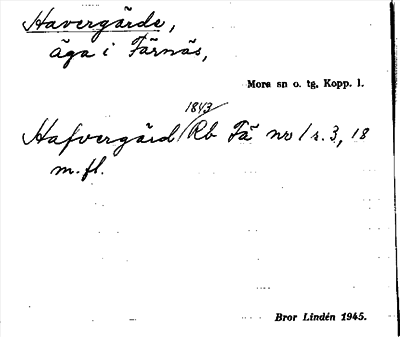 Havergärde,
äga i Färnäs,
Mora sn o. tg. Kopp. l.
Hafvergärd 1843/Rb Fä nr 1 s. 3, 18
m. fl.
Bror Lindén 1945.